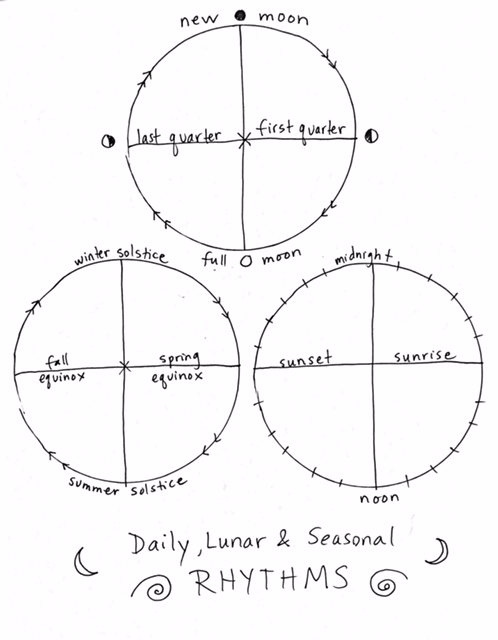 new moon
last quarter
first quarter
full moon
winter solstice
fall
equinox
spring
equinox
summer solstice
midnight
sunset
sunrise
noon
Daily, Lunar & Seasonal
RHYTHMS